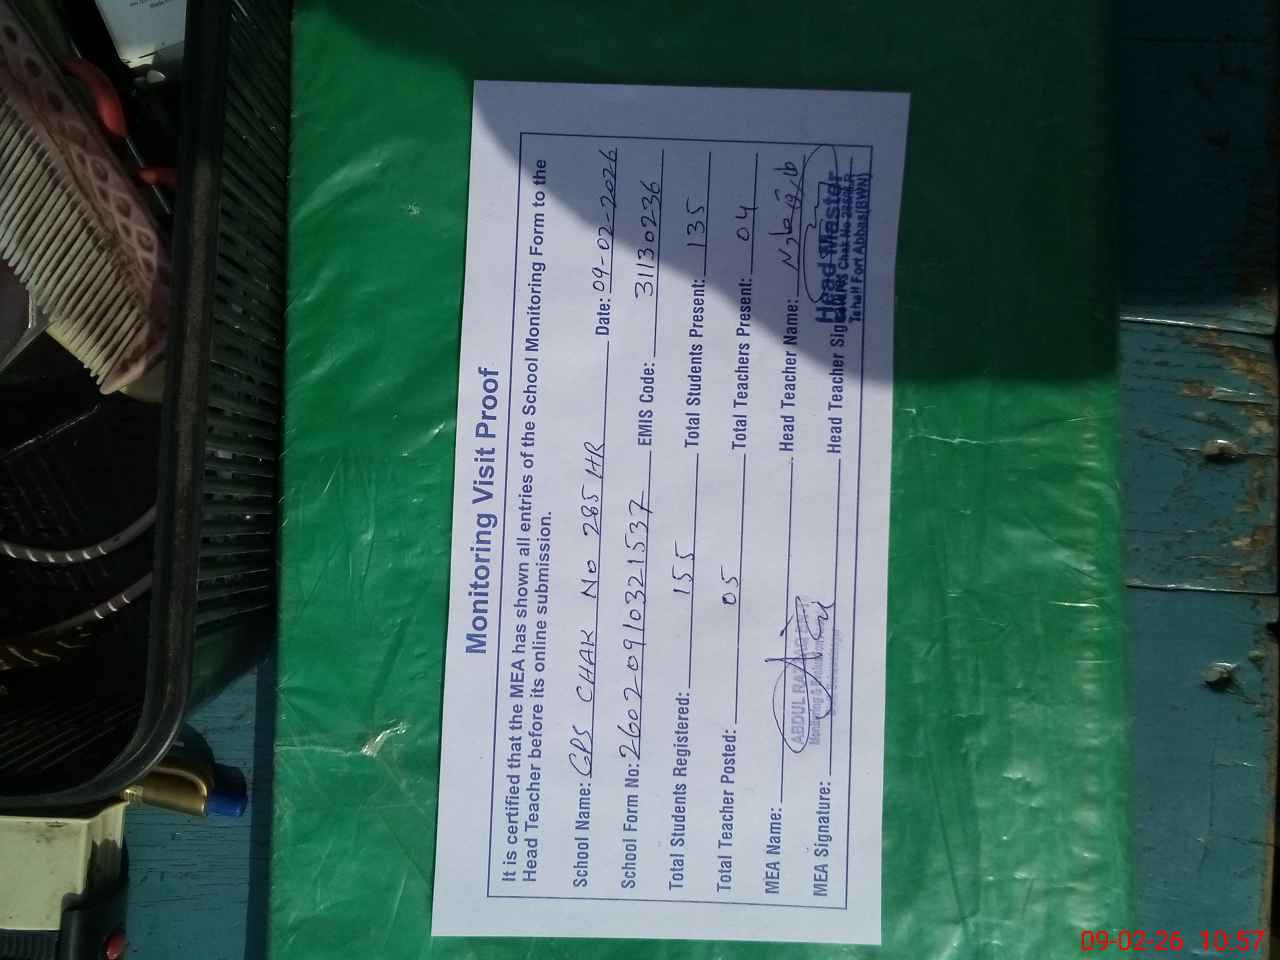 Monitoring Visit Proof
It is certified that the MEA has shown all entries of the School Monitoring Form to the
Head Teacher before its online submission.
School Name: GPS CHAK No 285 HR Date: 09-02-2026
School Form No: 260209103215 37 EMIS Code: 31130236
Total Students Registered: 155 Total Students Present: 135
Total Teacher Posted: 05 Total Teachers Present: 04
MEA Name: Head Teacher Name:
ABDUL
Monitoring &
MEA Signature: Head Teacher
Head Master
Chak No
Tehsil Fort Abbas(BWN)
09-02-26 10:57